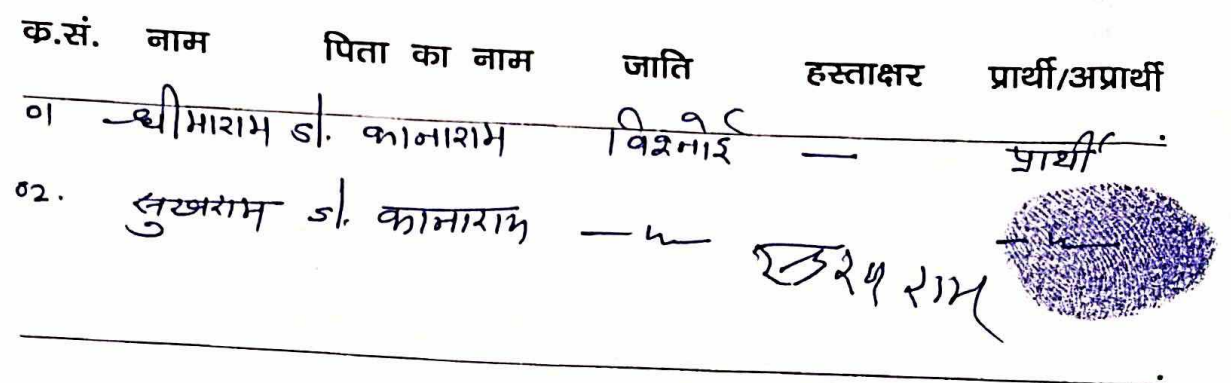 क.सं. नाम पिता का नाम जाति हस्ताक्षर प्रार्थी/अप्रार्थी
01 धीमाराम S/o. कानाराम विश्नोई — प्रार्थी
02. सुखराम S/o. कानाराम —〃— —〃—
राम